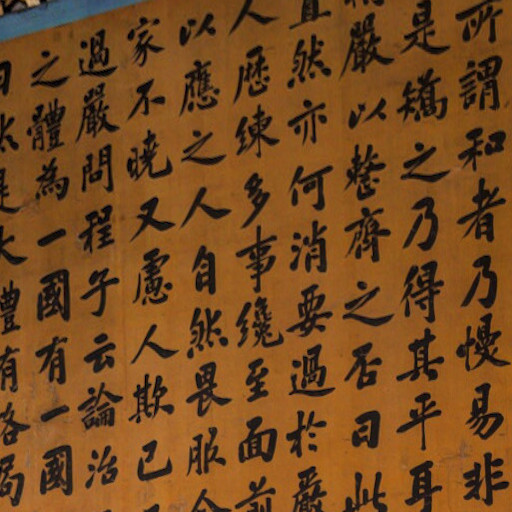 所謂和者乃慢易非
是矯之乃得其平耳
嚴以整齊之否曰此
直然亦何消要過於嚴
人歷練多事纔至面前
以應之人自然畏服今
家不曉又慮人欺己
過嚴問程子云論治
之體為一國有一國
曰然是大體有格局